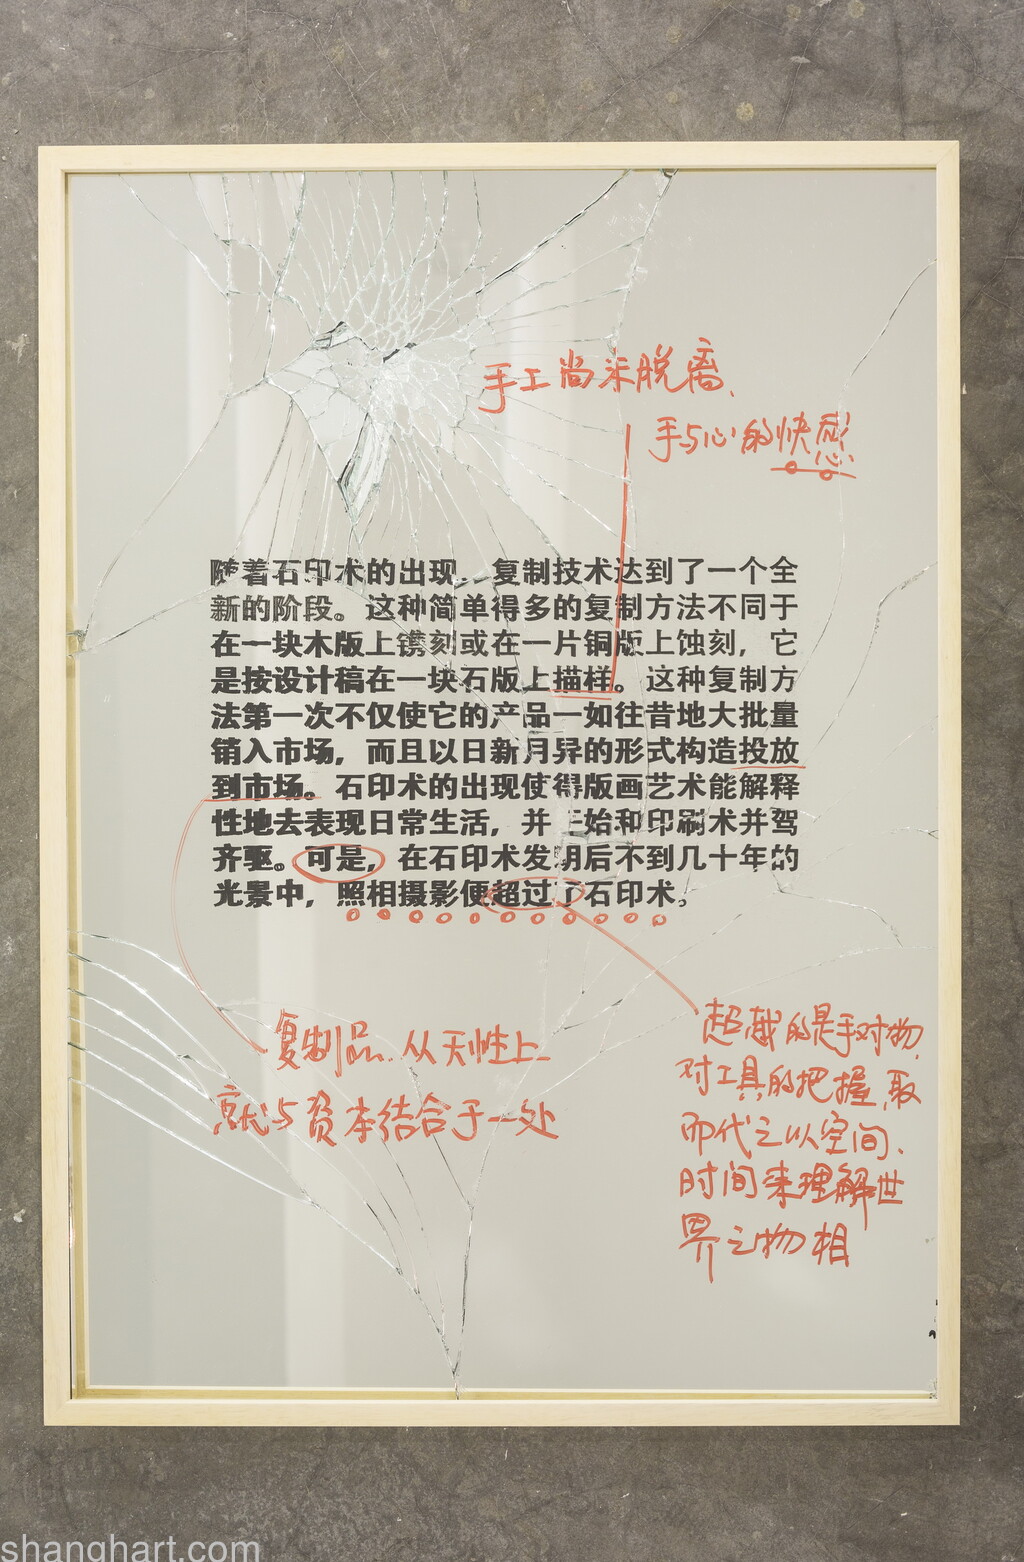 手工尚未脱离、
手与心的快感
随着石印术的出现，复制技术达到了一个全
新的阶段。这种简单得多的复制方法不同于
在一块木版上镌刻或在一片铜版上蚀刻，它
是按设计稿在一块石版上描样。这种复制方
法第一次不仅使它的产品一如往昔地大批量
销入市场，而且以日新月异的形式构造投放
到市场。石印术的出现使得版画艺术能解释
性地去表现日常生活，并开始和印刷术并驾
齐驱。可是，在石印术发明后不到几十年的
光景中，照相摄影便超过了石印术。
复制品、从天性上
就与资本结合于一处
超越的是手对物、
对工具的把握、取
而代之以空间、
时间来理解世
界之物相
shanghart.com